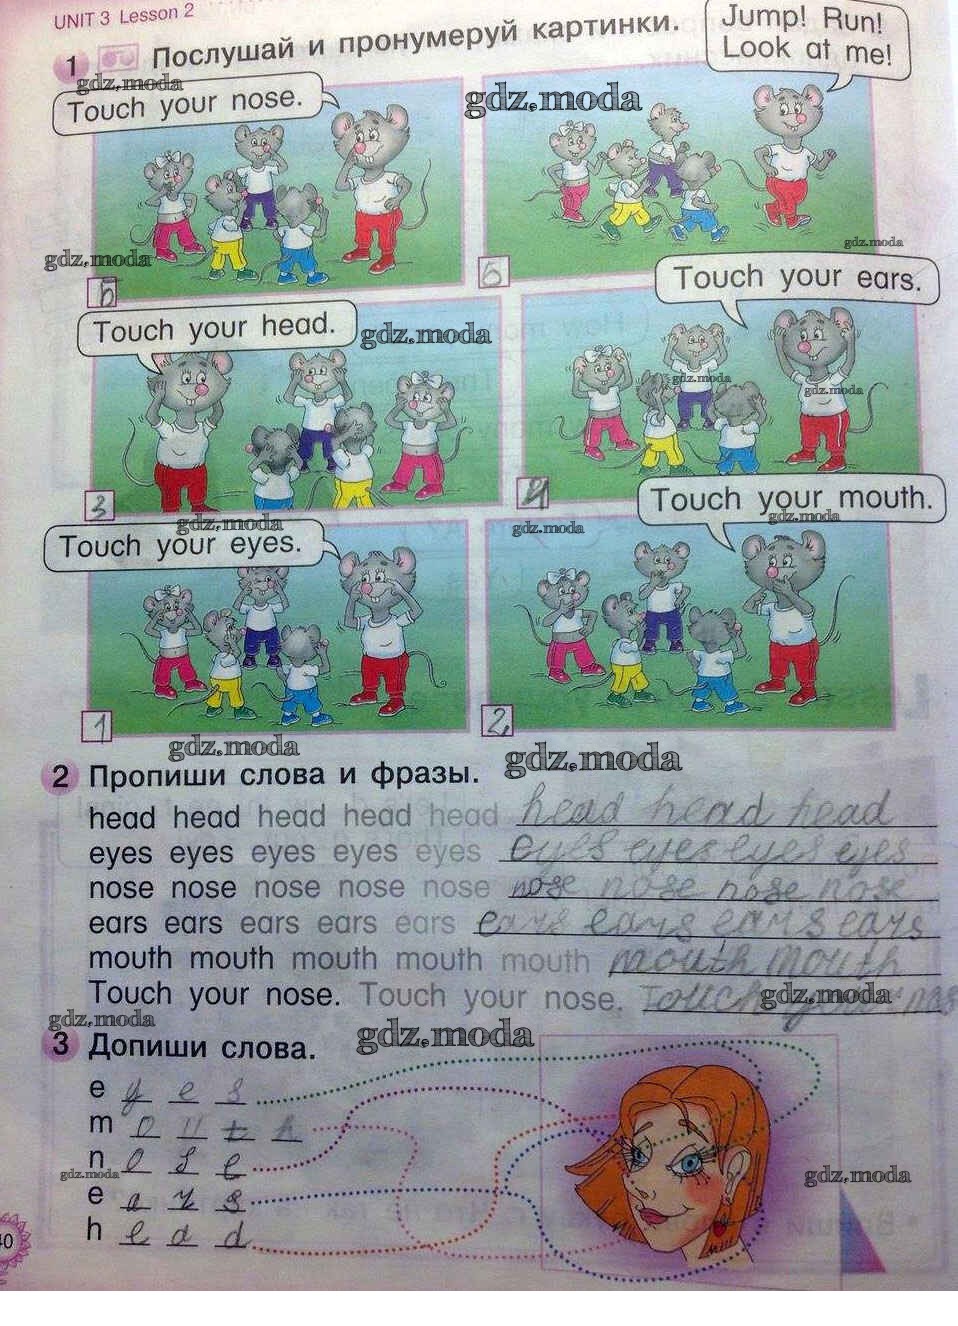 UNIT 3 Lesson 2
1 Послушай и пронумеруй картинки.
Jump! Run!
Look at me!
gdz.moda
Touch your nose.
gdz.moda
gdz.moda
gdz.moda
6
5
Touch your ears.
Touch your head.
gdz.moda
gdz.moda
gdz.moda
3
4
gdz.moda
gdz.moda
Touch your mouth.
gdz.moda
Touch your eyes.
1
2
gdz.moda
gdz.moda
2 Пропиши слова и фразы.
head head head head head head head head
eyes eyes eyes eyes eyes eyes eyes eyes eyes
nose nose nose nose nose nose nose nose nose
ears ears ears ears ears ears ears ears ears
mouth mouth mouth mouth mouth mouth mouth
Touch your nose. Touch your nose. Touch your nos
gdz.moda
gdz.moda
gdz.moda
3 Допиши слова.
e y e s
m o u t h
n o s e
gdz.moda
gdz.moda
e a r s
h e a d
40